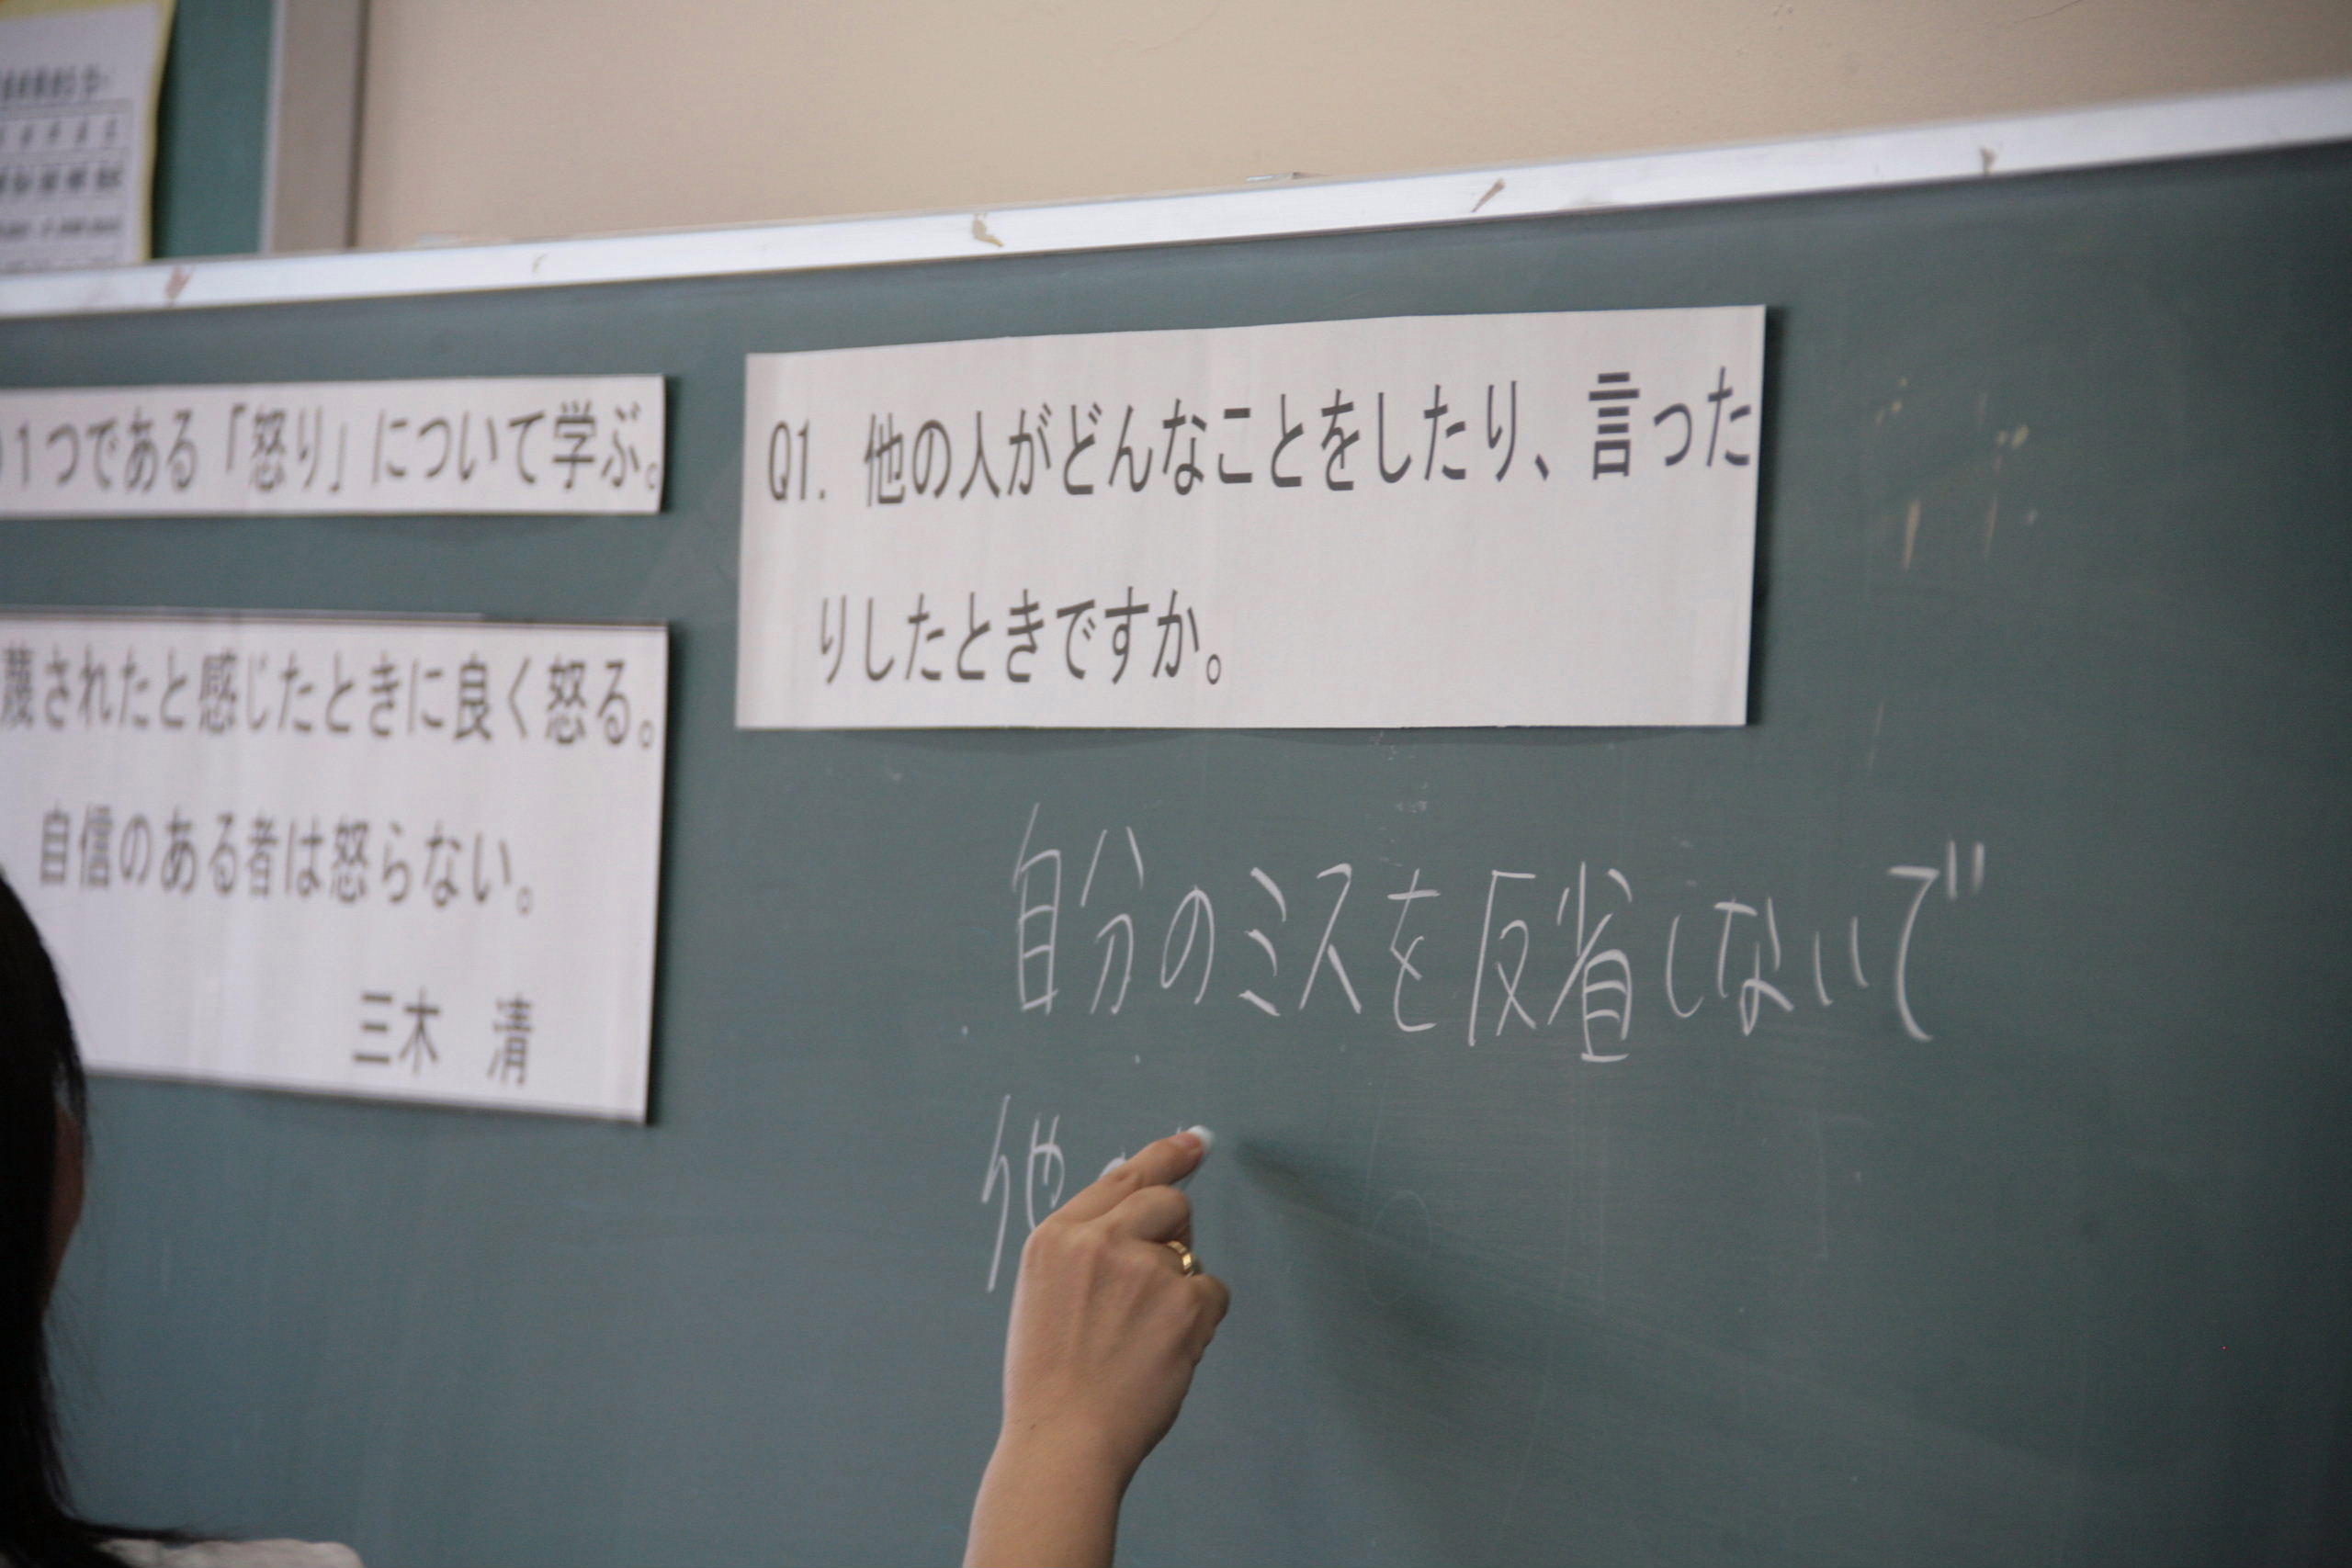 1つである「怒り」について学ぶ。
蔑されたと感じたときに良く怒る。
自信のある者は怒らない。
三木 清
Q1. 他の人がどんなことをしたり、言った
りしたときですか。
自分のミスを反省しないで
他